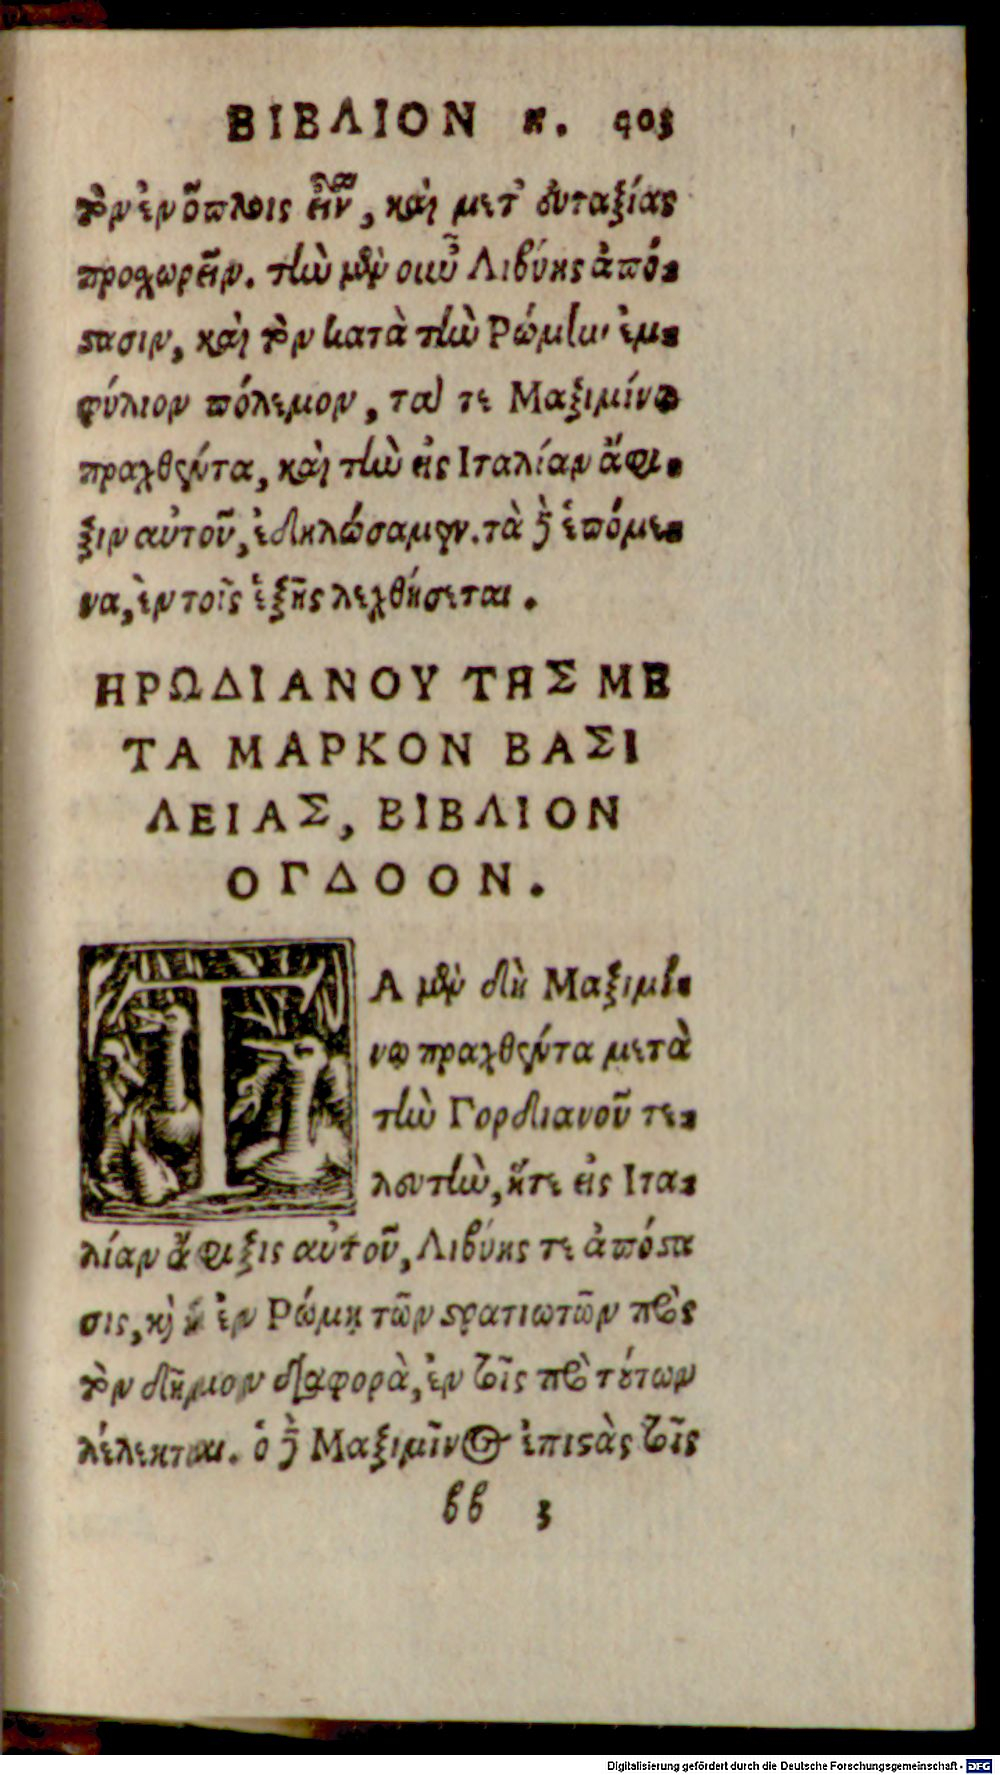 ΒΙΒΛΙΟΝ κ. 403
τὸν ἐν ὅπλοις εἶναι, καὶ μετ' εὐταξίας
προχωρεῖν. τὴν μὲν οὖν Λιβύης ἀπό-
στασιν, καὶ τὸν κατὰ τὴν Ρώμην ἐμ-
φύλιον πόλεμον, τά τε Μαξιμίνῳ
πραχθέντα, καὶ τὴν εἰς Ιταλίαν ἄφι-
ξιν αὐτοῦ, ἐδηλώσαμεν. τὰ δὲ ἑπόμε-
να, ἐν τοῖς ἑξῆς λεχθήσεται.
ΗΡΩΔΙΑΝΟΥ ΤΗΣ ΜΕ
ΤΑ ΜΑΡΚΟΝ ΒΑΣΙ
ΛΕΙΑΣ, ΒΙΒΛΙΟΝ
ΟΓΔΟΟΝ.
ΤΑ μὲν δὴ Μαξιμί-
νῳ πραχθέντα μετὰ
τὴν Γορδιανοῦ τε-
λευτὴν, ἥτε εἰς Ιτα-
λίαν ἄφιξις αὐτοῦ, Λιβύης τε ἀπόστα
σις, καὶ ἡ ἐν Ρώμῃ τῶν στρατιωτῶν πρὸς
τὸν δῆμον διαφορὰ, ἐν τοῖς πρὸ τούτων
λέλεκται. ὁ δὲ Μαξιμῖνος ἐπιστὰς τοῖς
bb 3
Digitalisierung gefördert durch die Deutsche Forschungsgemeinschaft - DFG